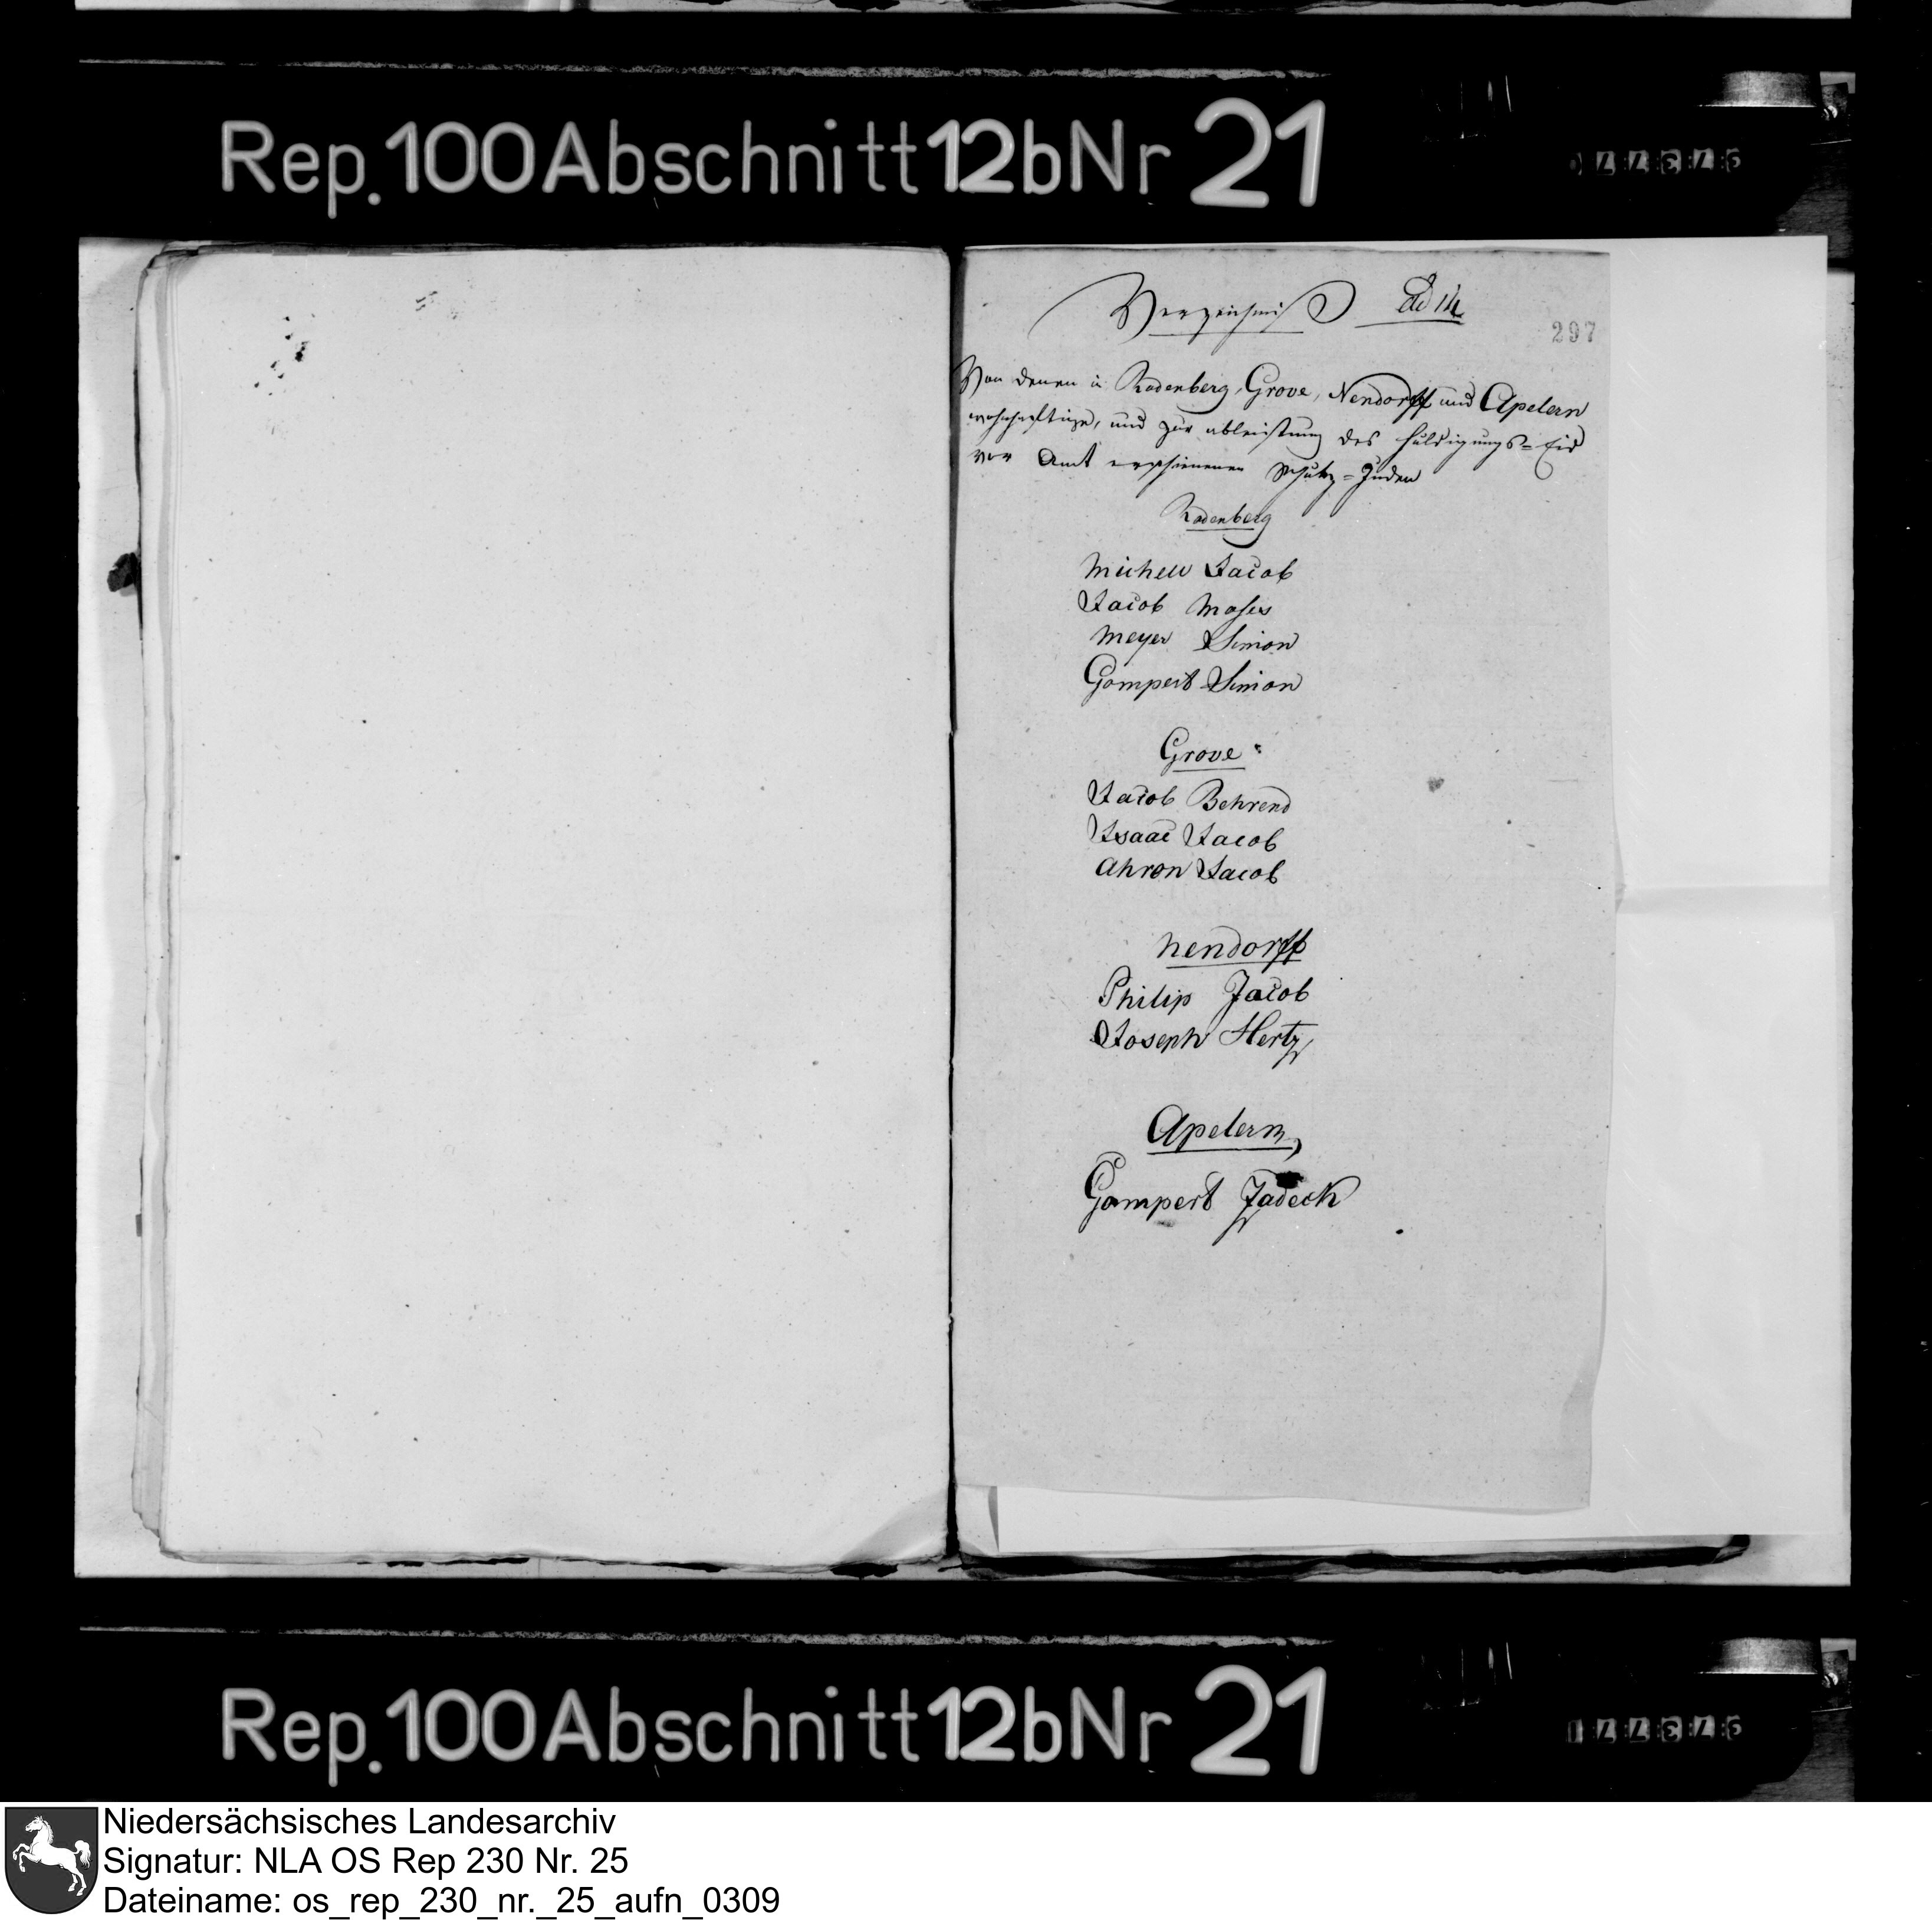 Rep. 100 Abschnitt 12b Nr 21
Verzeichniß ad 14
297
Von denen in Rodenberg, Grove, Nendorff und Apelern
wohnhafften, und zur ableistung des Huldigungs=Eid
vor Amt erschienenen Schutz=Juden
Rodenberg
Michell Jacob
Jacob Moses
Meyer Simon
Gompert Simon
Grove
Jacob Behrend
Isaac Jacob
Ahron Jacob
Nendorff
Philip Jacob
Joseph Hertz
Apelern,
Gompert Zadeck
Rep. 100 Abschnitt 12b Nr 21
Niedersächsisches Landesarchiv
Signatur: NLA OS Rep 230 Nr. 25
Dateiname: os_rep_230_nr._25_aufn_0309